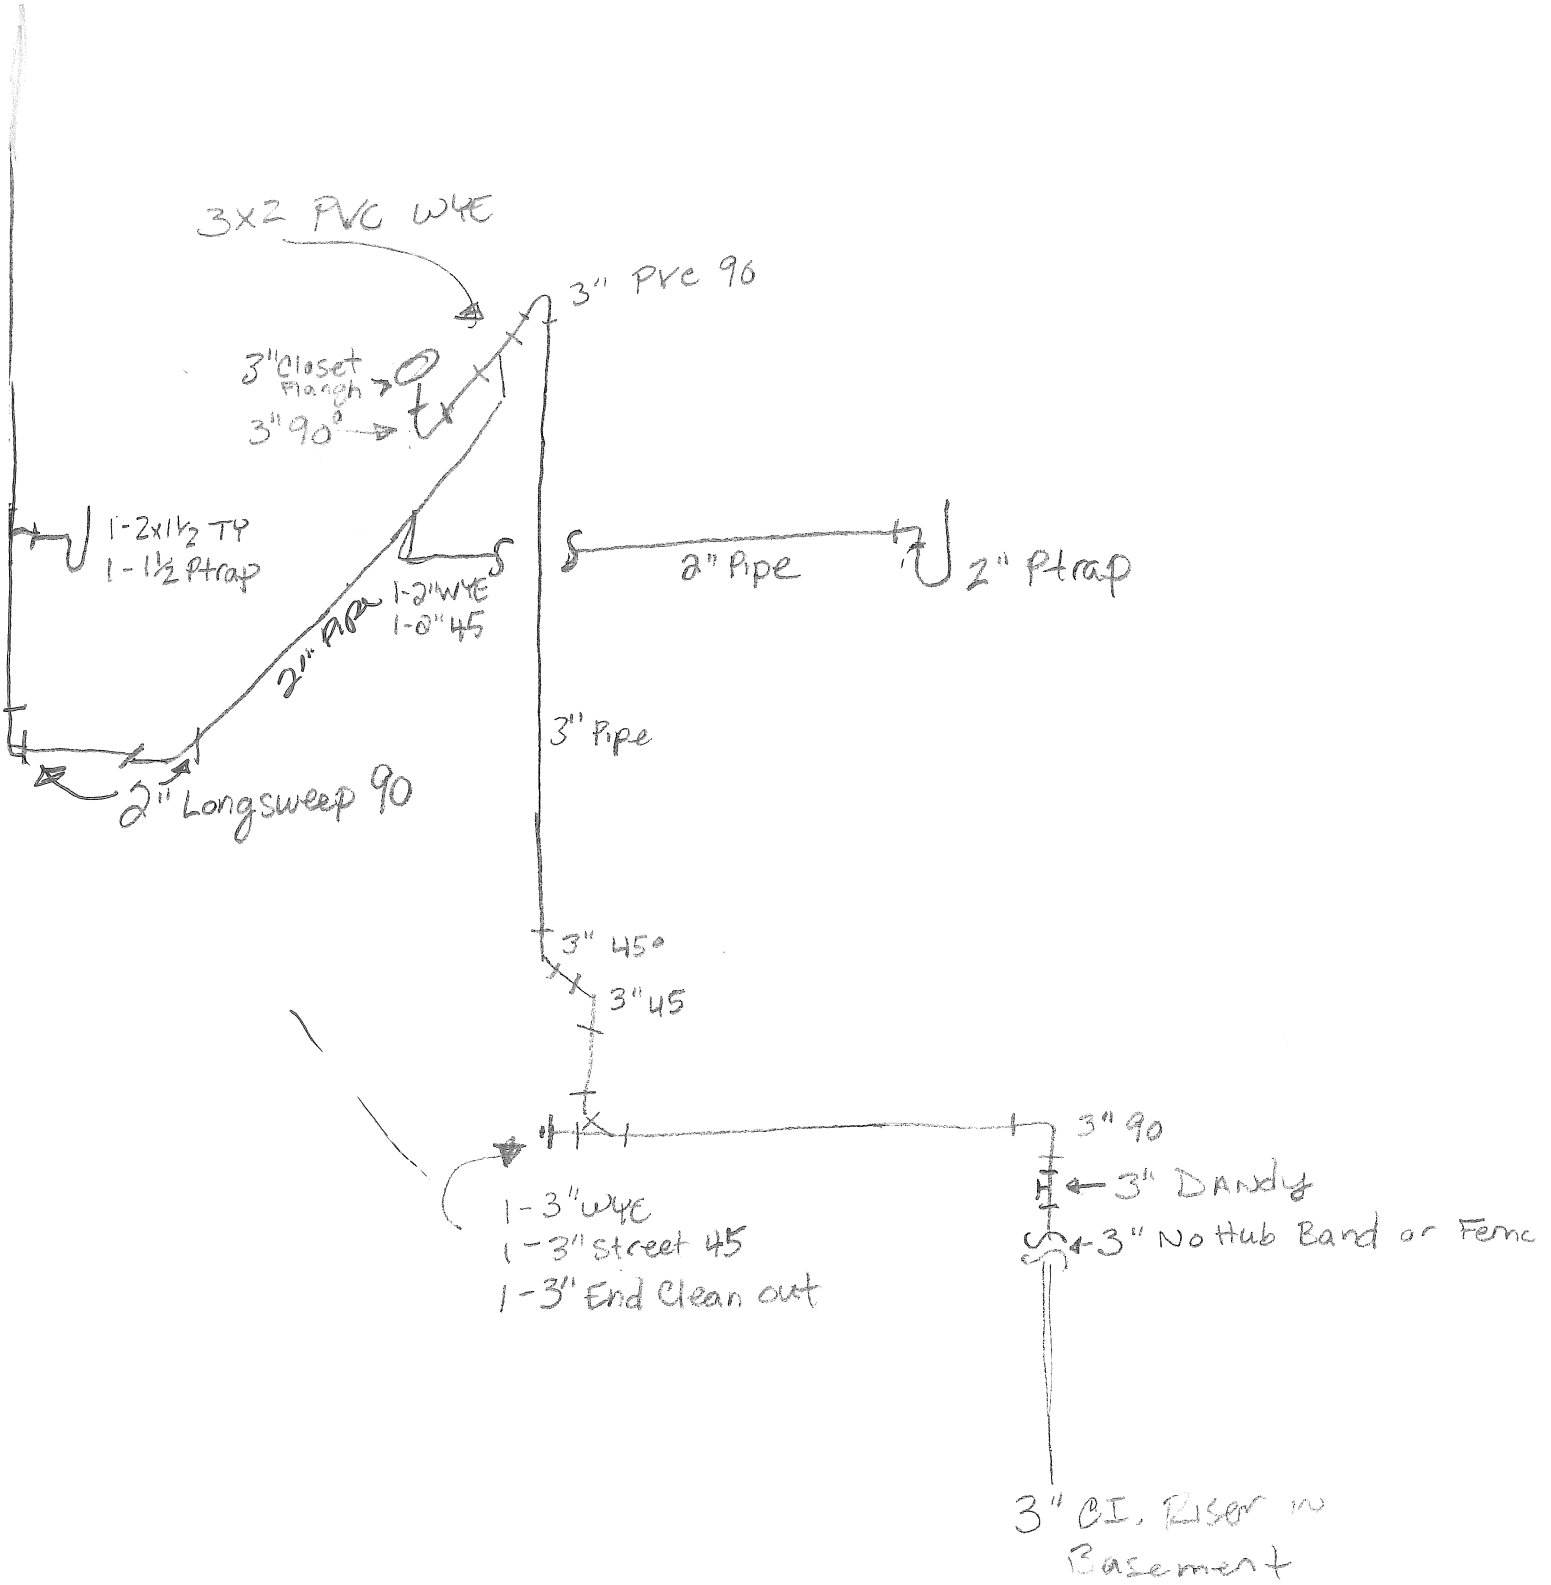 3x2 PVC WYE
3" PVC 90
3" Closet
Flangh
3" 90°
1-2x1½ TY
1-1½ Ptrap
1-2" WYE
1-2" 45
2" Pipe
2" Pipe
2" Ptrap
3" Pipe
2" Longsweep 90
3" 45°
3" 45
3" 90
3" DANdy
3" No Hub Band or Fernc
1-3" WYE
1-3" Street 45
1-3" End Clean out
3" C.I. Riser in
Basement